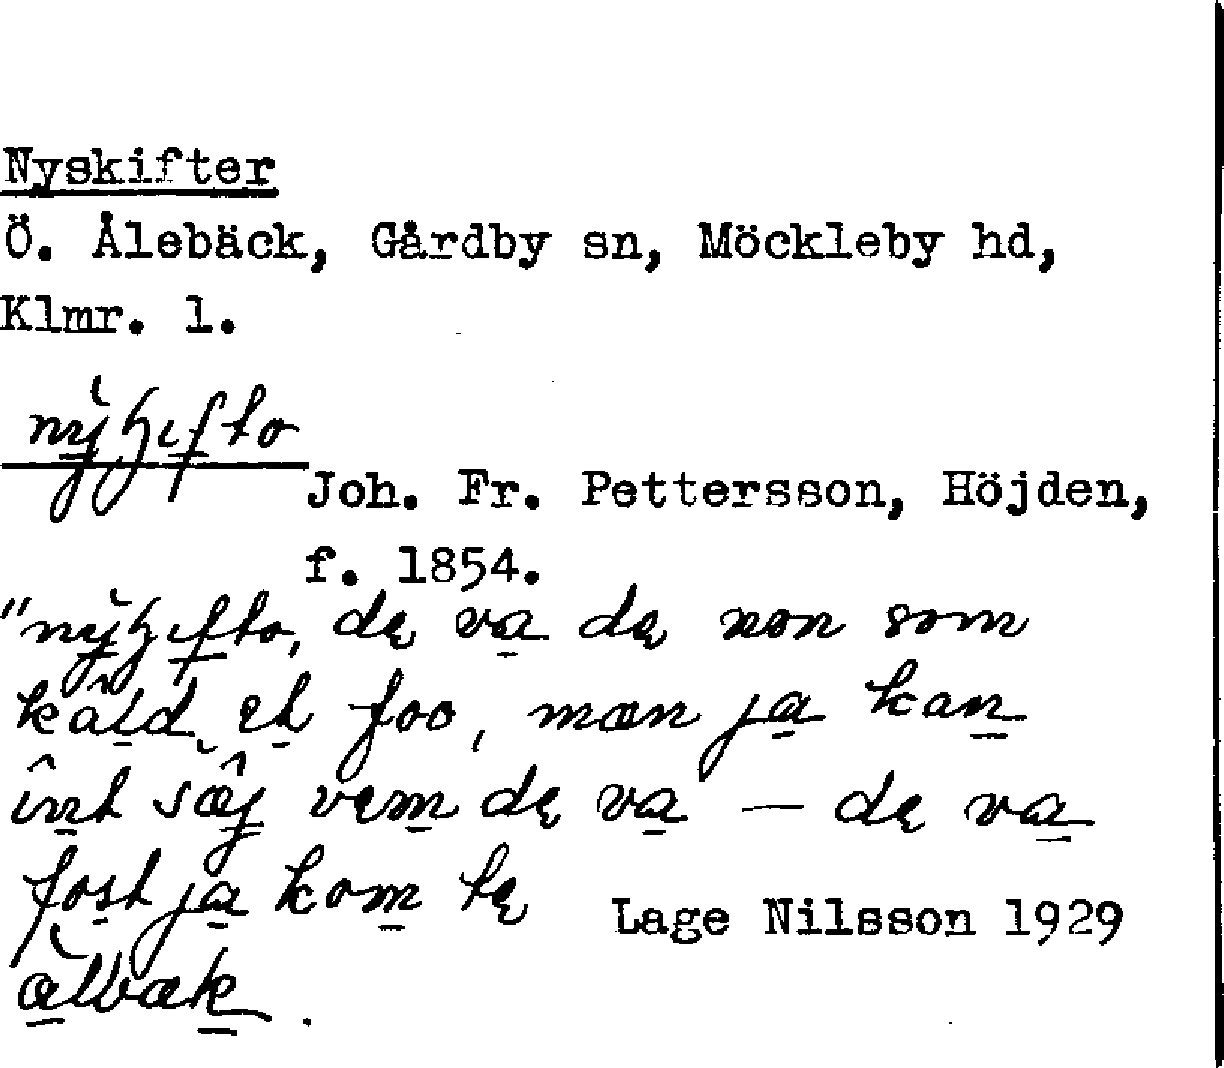 Nyskifter
Ö. Ålebäck, Gårdby sn, Möckleby hd,
Klmr. l.
Joh. Fr. Pettersson, Höjden,
f. 1854.
de va de non som
foo, mæn ja kan
int sæj vem de va — de va
fost ja kom te
Lage Nilsson 1929
ælbæk.